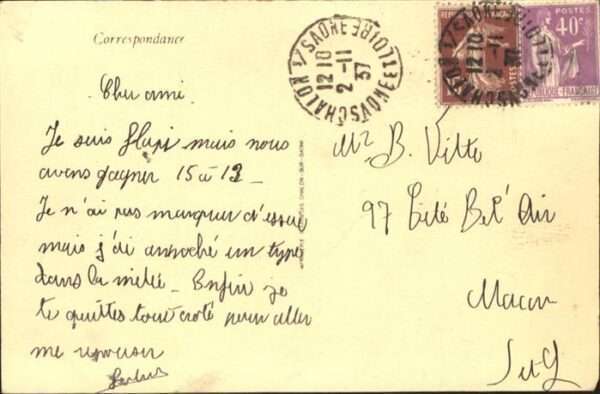 Correspondance
CHALON S/ SAONE SAONE ET LOIRE
12 10
2-11
37
POSTES
40c
REPUBLIQUE FRANÇAISE
Cher ami
Je suis flapi mais nous
avons gagner 15 à 12
Je n'ai pas marquer d'essai
mais j'ai amoché un type
dans la mêlée - Enfin je
te quittes tout croté pour aller
me reposer
Mr B. Vitte
97 Cité Bel' Air
Macon
S et L